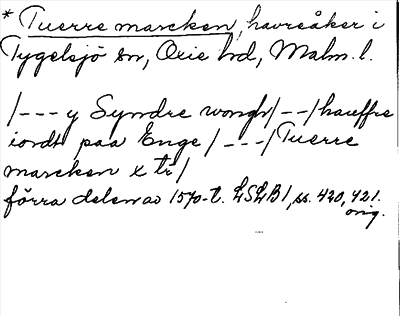 * Tuerre marcken, havreåker i
Tygelsjö sn, Oxie hd, Malm. l.
/--- y Syndre wongh/--/hauffre
iordt paa Enge/---/Tuerre
marcken x tr/
förra delen av 1570-t. LSLB1, ss. 420, 421.
orig.